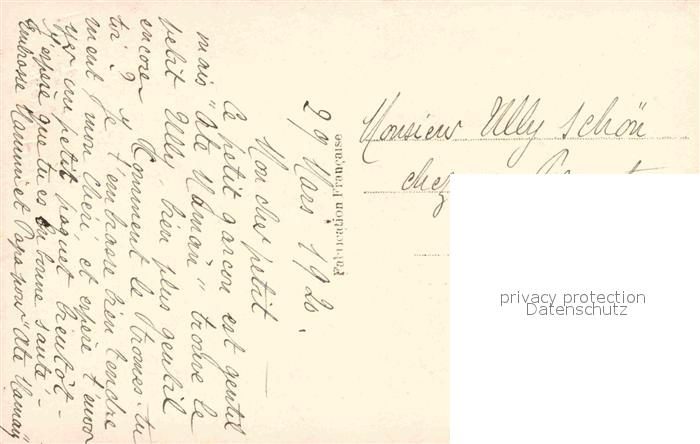 29 Mars 1920.
Mon cher petit
Ce petit garçon est gentil
mais "Ata Maman" trouve le
petit Ully, bien plus gentil
encore, Comment le trouves-tu
toi? Je t'embrasse bien tendre
ment mon chéri, et espère t'envo
yer un petit paquet bientôt -
J'espère que tu es en bonne santé,-
Embrasse Maman et Papa pour "Ata Maman"
Fabrication Française
Monsieur Ully Schön
chez
privacy protection
Datenschutz